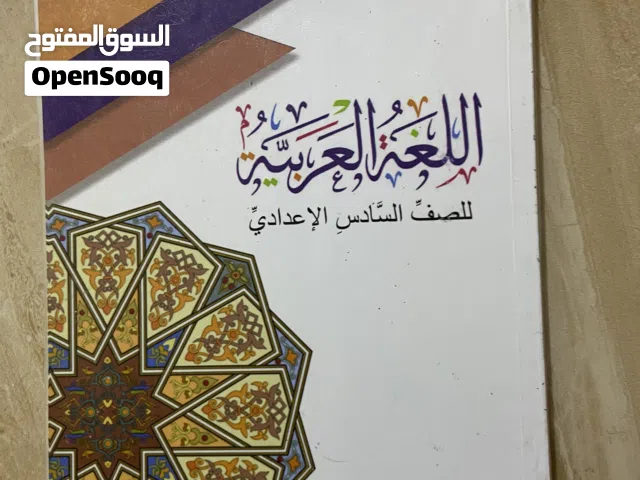 السوق المفتوح
OpenSooq
اللغة العربية
للصفِّ السَّادسِ الإعداديِّ